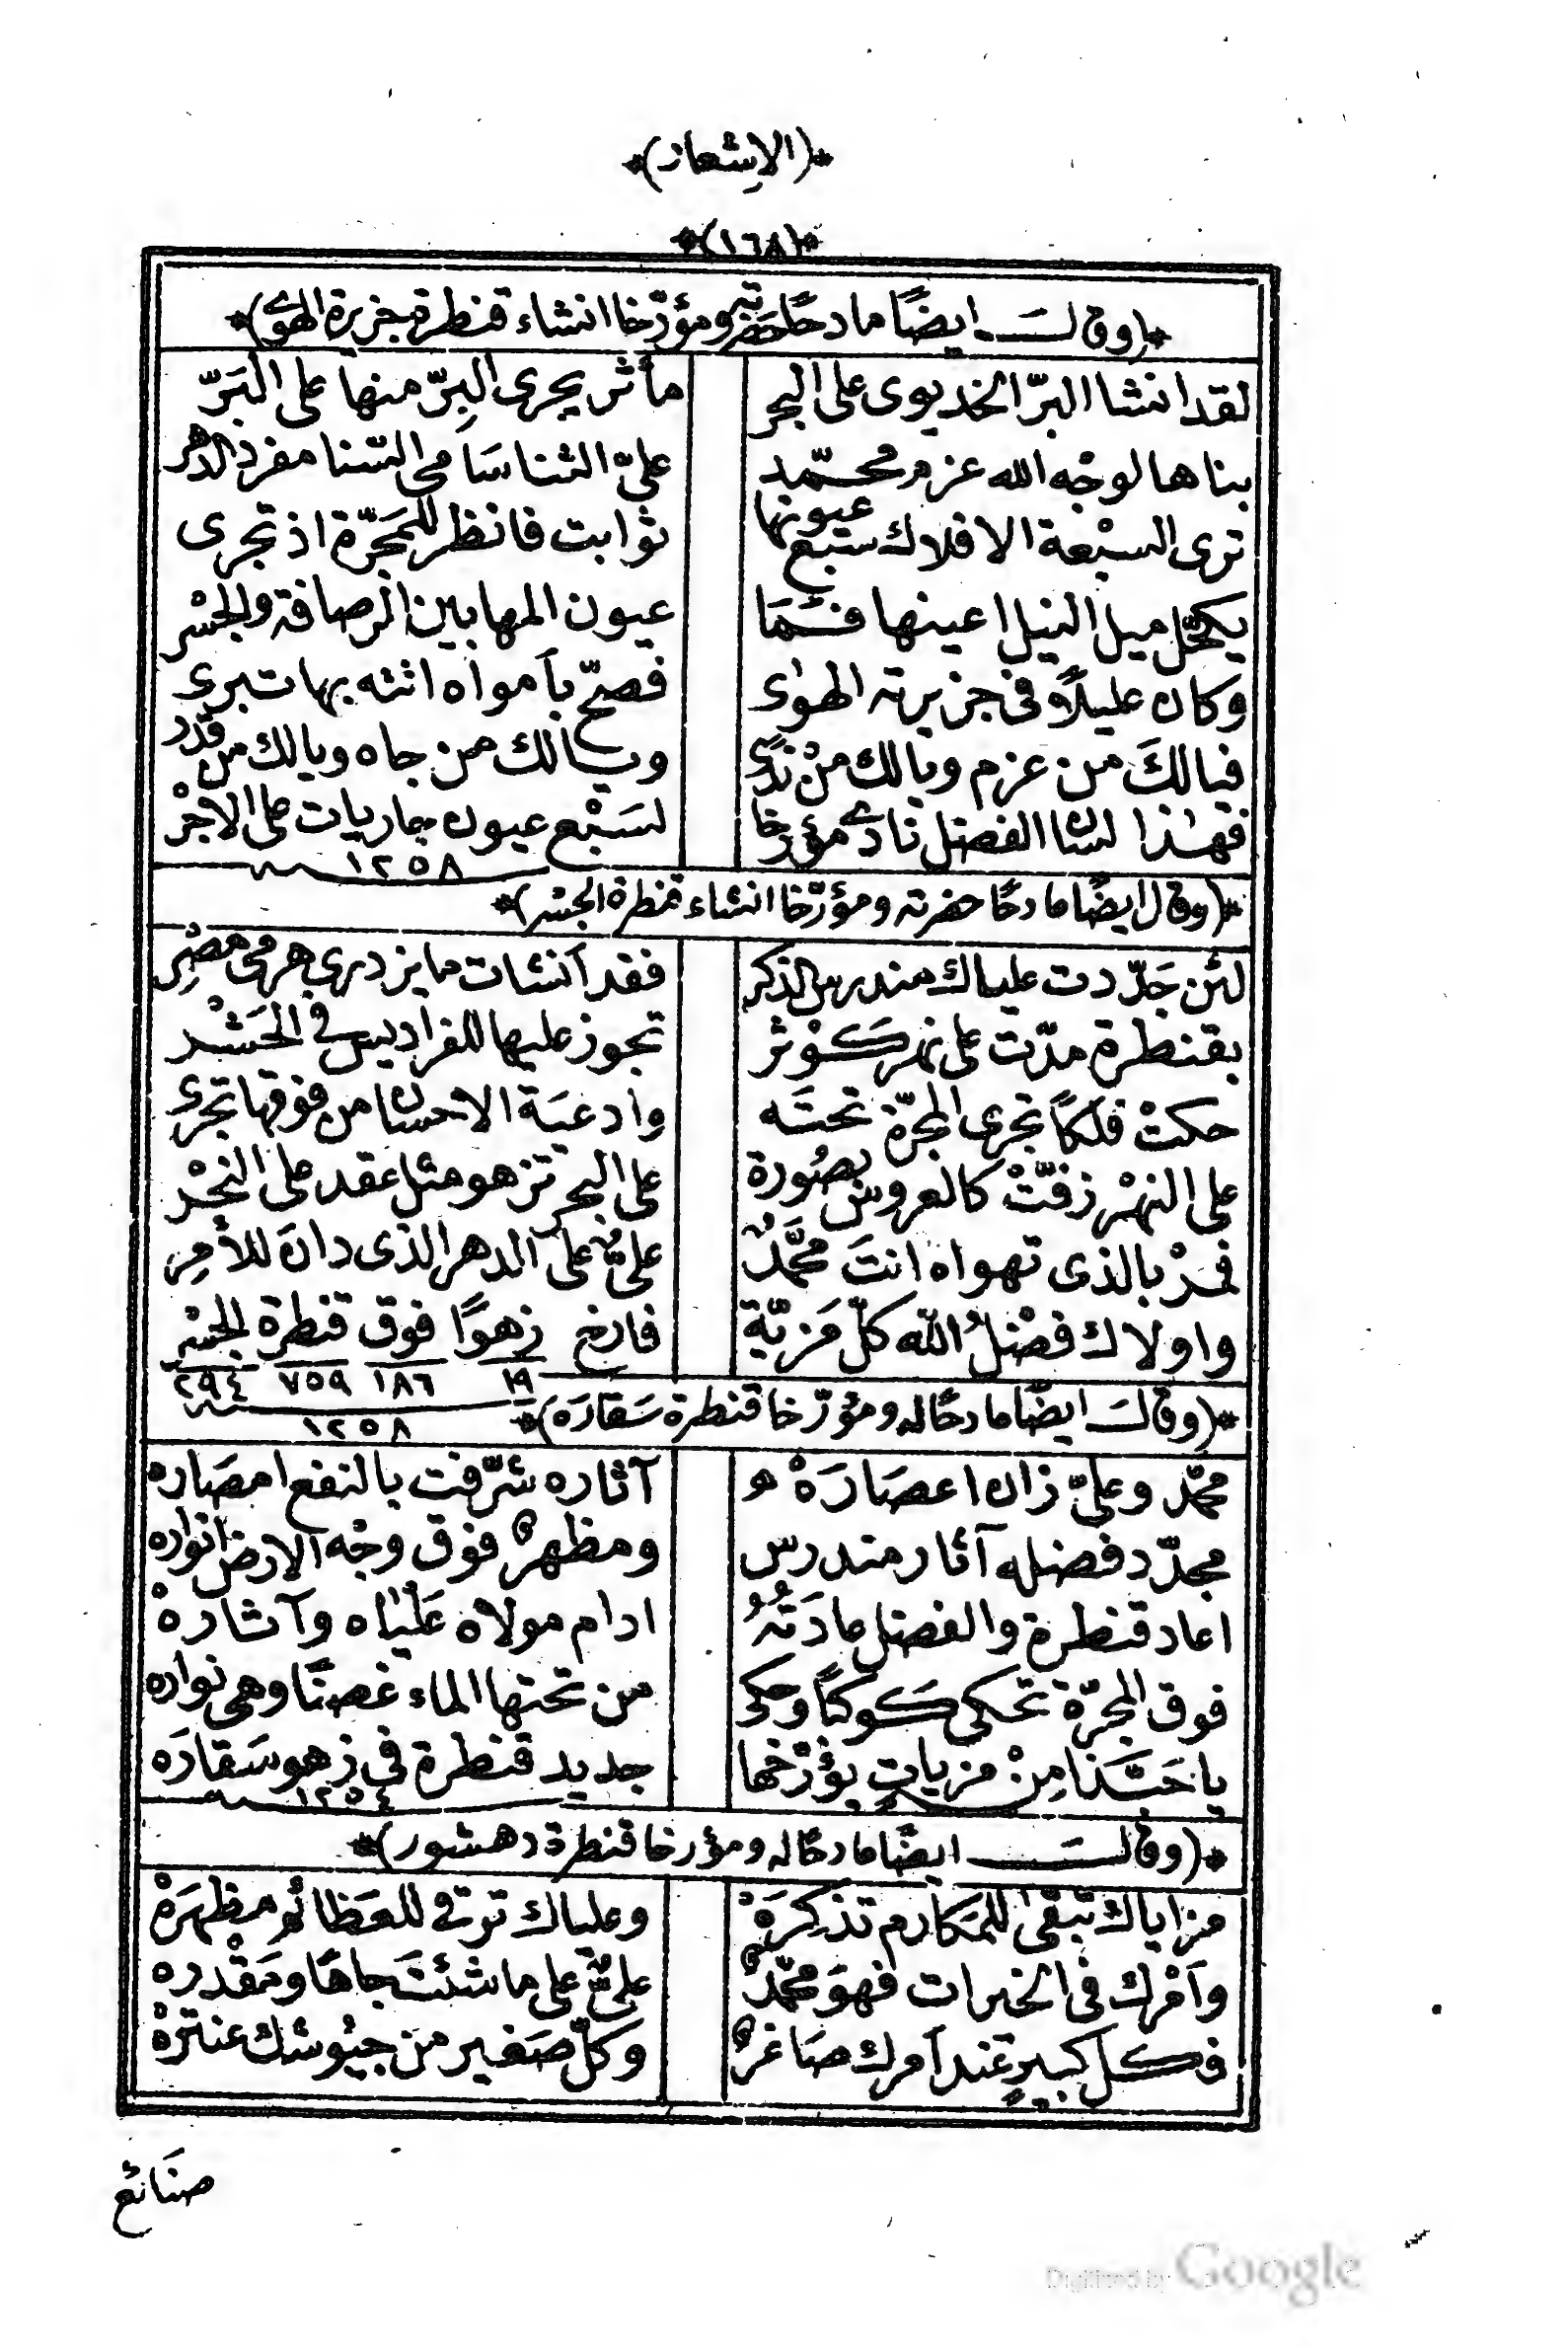 (الاشعار)
(١٦٨)
(وقالـــ ايضًا مادحًا حضرته ومؤرّخا انشاء قنطرة جزيرة الهوى)
لقد انشا البرّ الخديوى على البحر مأثر يجرى البِرّ منها على البَرّ
بناها لوجْه الله عزم محمّد علىّ الثنا سَامى السّنا مفرد الدهر
ترى السبْعة الافلاك سبع عيونها ثوابت فانظر للمَجَرّة اذ تجرى
يكحّل ميل النيل اعينها فثمَا عيون المها بين الرصافة والجسْر
وكان عليلاً فى جزيرته الهوٰى فصحّ بأمواه انته بها تبرى
فيالكَ من عزم ويالك منْ ندًى ويالك من جاه ويالك من قدر
فهٰذا لسان الفضل نادى مؤرخا لسَبْع عيون جاريات على الاجْر
١٢٥٨
(وقال ايضًا مادحًا حضرته ومؤرّخا انشاء قنطرة الجسر)
لئن جَدّدت علياك مندرس الذكر فقد أنشات ما يزدرى هرمى مصْر
بقنطرة مدّت على نهر كوْثر تجوز عليها للفراديس فى الحَشْر
حكتْ فلكًا تجرى المجرّة تحتَه وادعيَة الاحسان من فوقها تجرى
على النهْر زفّتْ كالعروس بصُورة على البحر تزهو مثل عقد على النحْر
فمرْ بالذى تهواه انتَ محمَّدٌ علىٌّ على الدهر الذى دانَ للأمرِ
واولاك فضْلُ الله كلّ مَزيّة فارخ زهوًا فوق قنطرة الجسْر
١٩ ١٨٦ ٧٥٩ ٢٩٤
١٢٥٨
(وقالـــ ايضًا مادحًا له ومؤرّخا قنطرة سَقارَه)
محمّد وعلىّ زان اعصَارَهْ آثاره شرّفت بالنفع امصَاره
مجدّد فضله آثار مندرس ومظهرٌ فوق وجْه الارض انواره
اعاد قنطرة والفضل عادَتُهُ ادام مولاهُ عَلْيٰاه وآثارهْ
فوق المجرّة تحكى كوكبًا وحكى من تحتها الماء غصنًا وهى نواره
يا حَبَّذا مِنْ مزياتٍ يؤرّخها جديد قنطرة فى زهو سَقارَه
١٢٥٤
(وقالـــ ايضًا مادحًا له ومؤرخا قنطرة دهشور)
مزاياك تبْقىٰ للمَكارم تذكِرَهْ وعلياك ترقى للعَظائم مظهَرَهْ
وَأمْرك فى الخيرات فهوَ محمّدٌ علىٌّ على ما شئتَ جاهًا ومَقْدره
فكل كبيرٍ عند أمرك صَاغرٌ وكلّ صَغير من جيُوشك عنترهْ
صنَائع
Digitized by Google